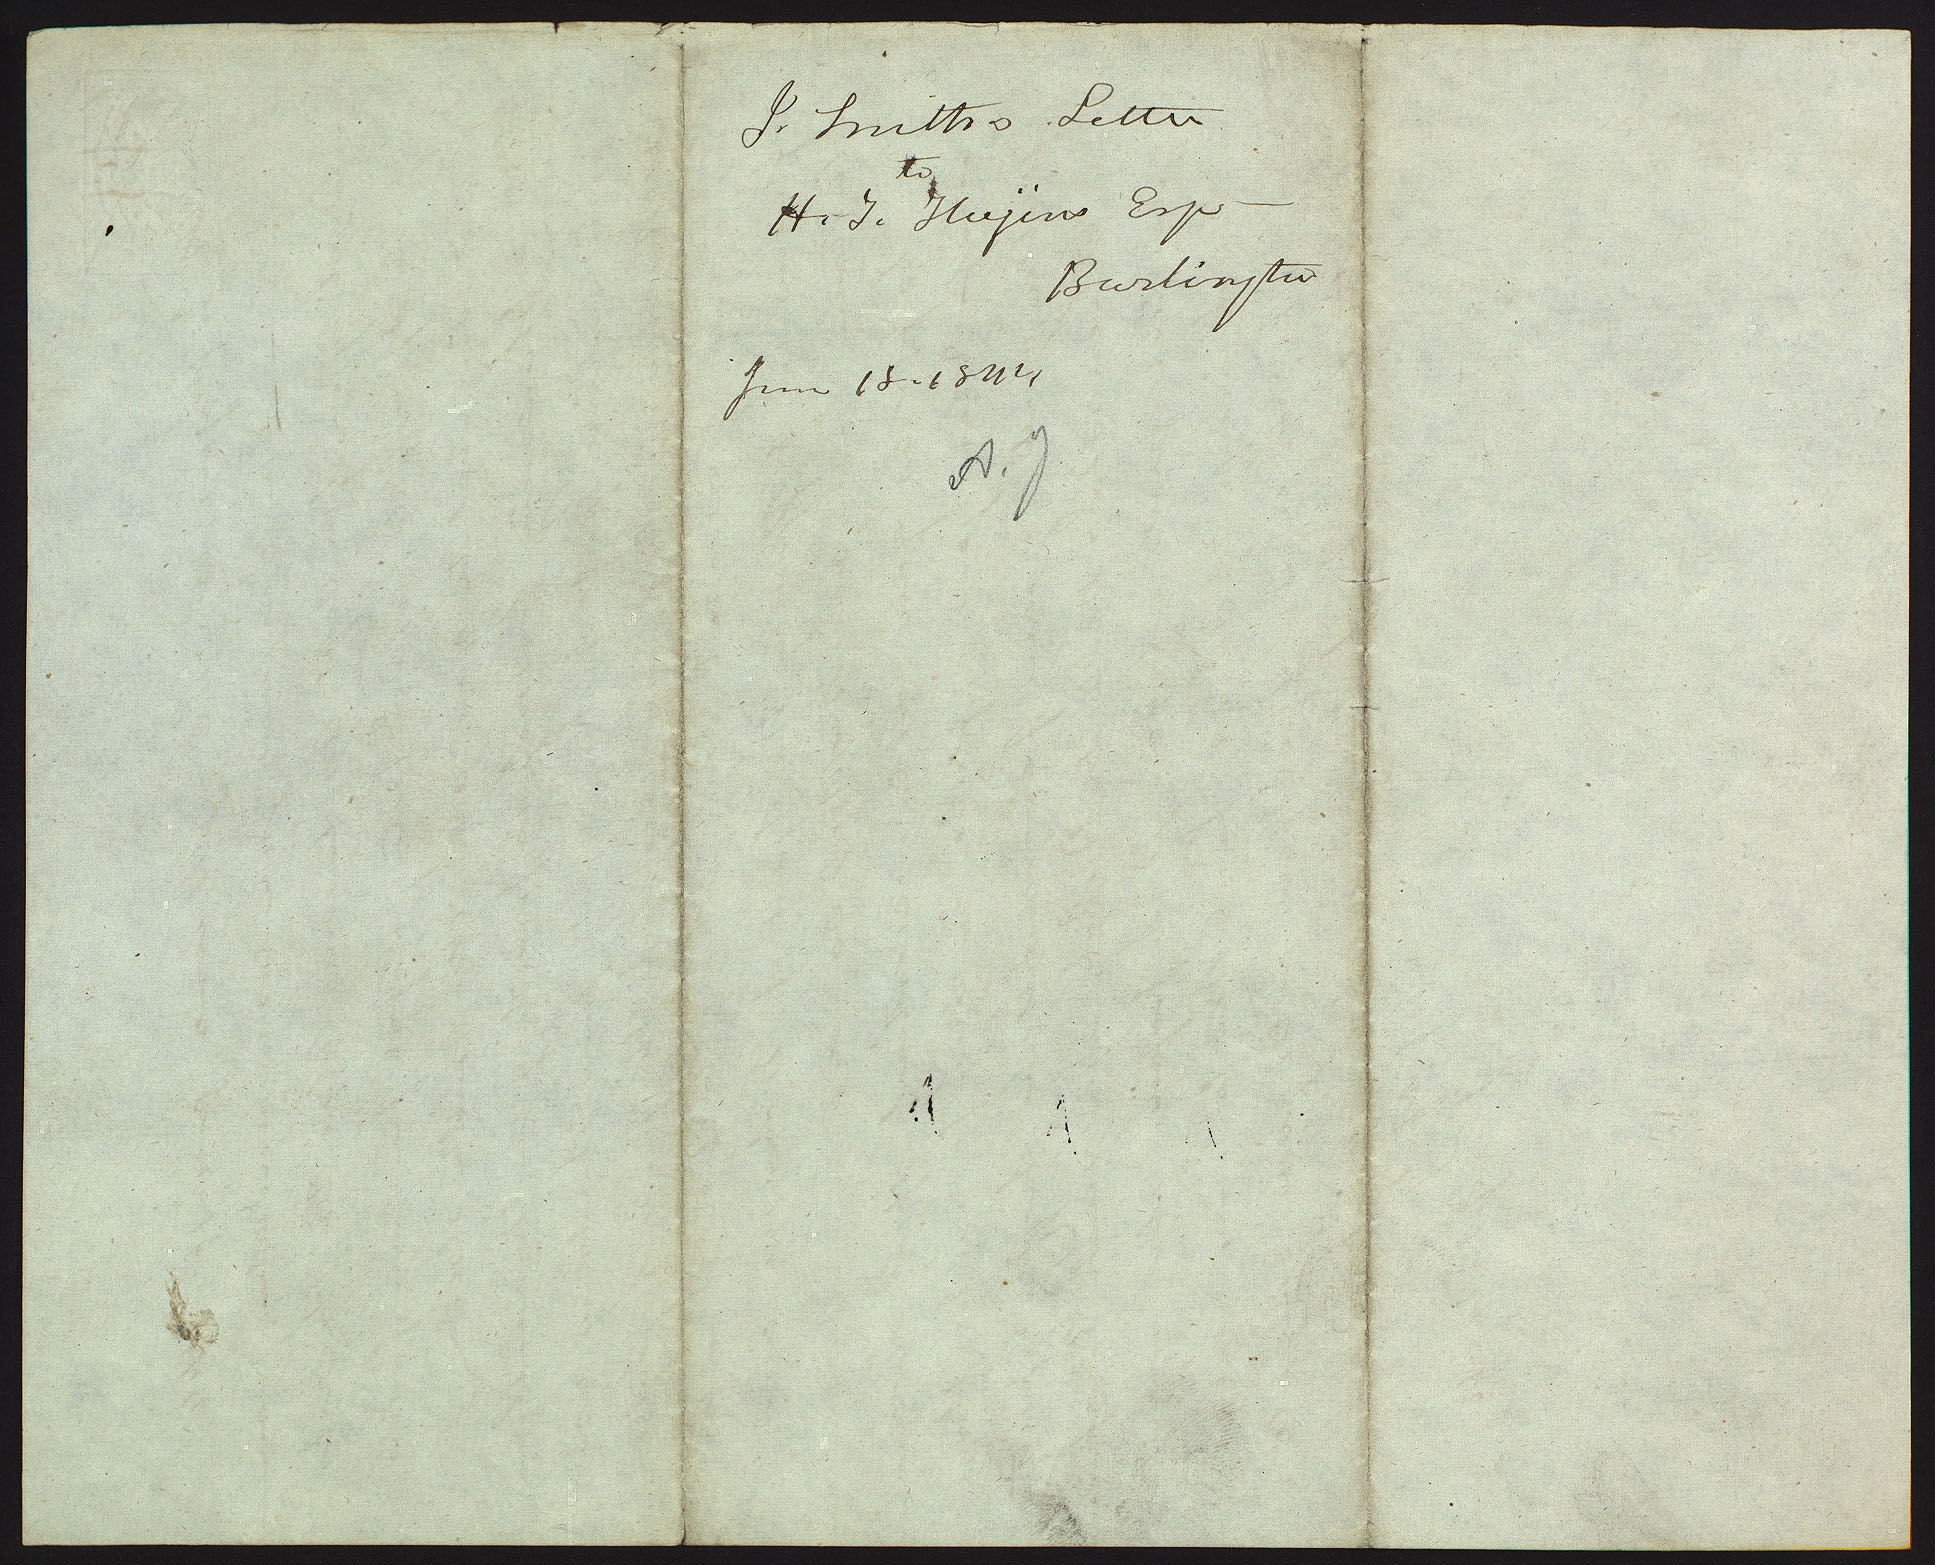 J. Smiths Letter
to
H. T. Hugins Esqr
Burlington
June 18. 1844